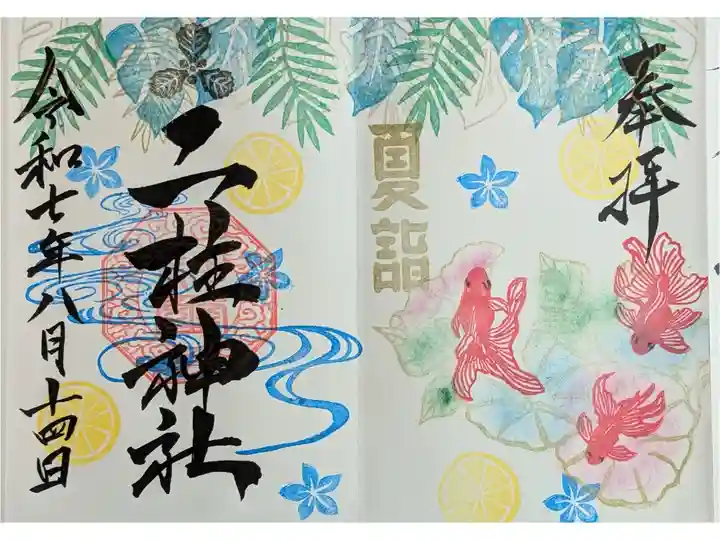 奉拝
夏詣
二柱神社
令和七年八月十四日